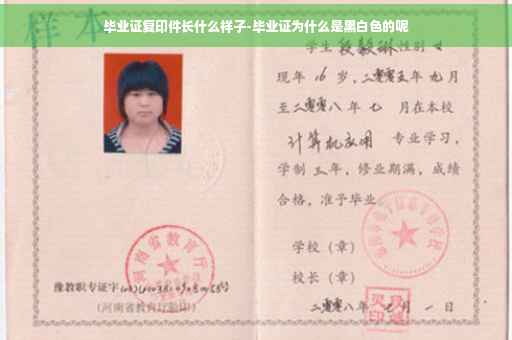 毕业证复印件长什么样子-毕业证为什么是黑白色的呢
样本
学生段毅琳性别女
现年16岁，二零零五年九月
至二零零八年七月在本校
计算机应用 专业学习，
学制三年，修业期满，成绩
合格，准予毕业。
学校（章）
校长（章）
二零零八年 月一日
河南省教育厅
豫教职专证字
（河南省教育厅验印）